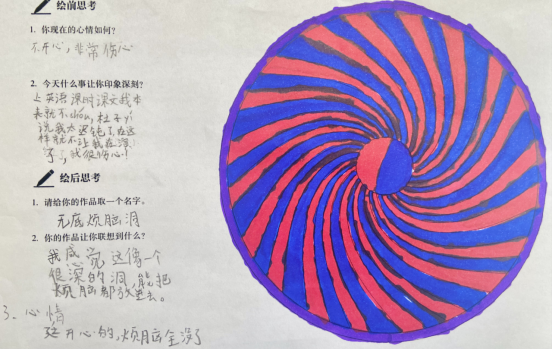 绘前思考
1. 你现在的心情如何?
不开心，非常伤心
2. 今天什么事让你印象深刻?
上英语课时课文我本
来就不 杜子yi
说我太迟钝了,
样就不让我在
了,我很伤心!
绘后思考
1. 请给你的作品取一个名字。
无底烦脑洞
2. 你的作品让你联想到什么?
我感觉这像一个
很深的洞能把
烦脑都放进去。
3、心情
开心的,烦脑全没了